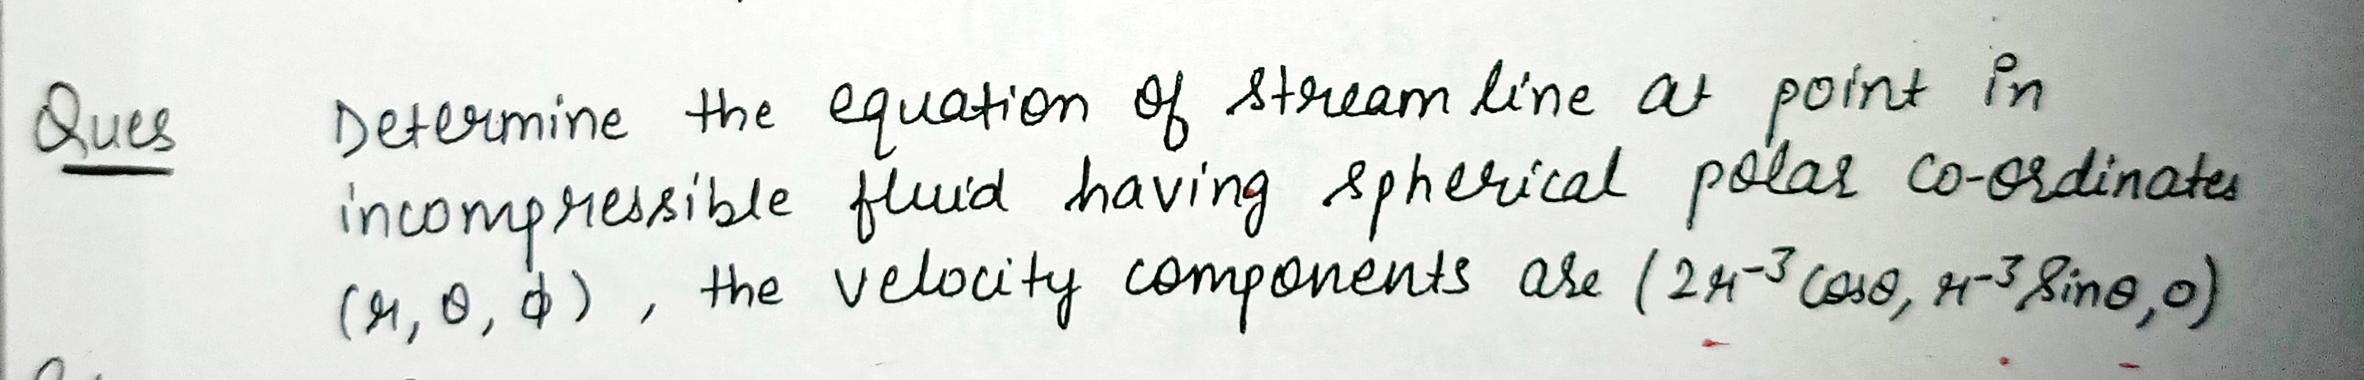 Ques Determine the equation of stream line at point in
incompressible fluid having spherical polar co-ordinates
(r, θ, ϕ), the velocity components are (2r⁻³ cosθ, r⁻³ Sinθ, 0)